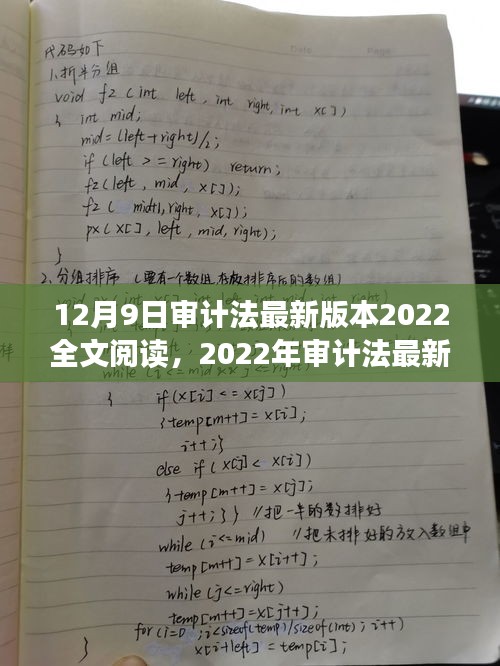 Date
Page
代码如下
1.折半分组
void fz(int left, int right, int x[])
{ int mid;
mid=(left+right)/2;
if(left>=right) return;
fz(left, mid, x[]);
fz( mid+1, right, x[]);
px(x[], left, mid, right);
}
2.分组排序 (要有一个数组存放排序后的数组)
12月9日审计法最新版本2022
全文阅读，2022年审计法最新
{ if(x[i]<=x[j])
{temp[m++]=x[i];
i++;}
else if(x[j]<x[i])
}temp[m++]=x[j];
j++;}} //把一半的数排好
while(i<=mid) //把未排好的放入数组中
temp[m++]=x[i++];
while(j<=right)
temp[m++]=x[j++];
for(i=0;i<sizeof(temp)/sizeof(int);i++)
} x[i+left]=temp[i];